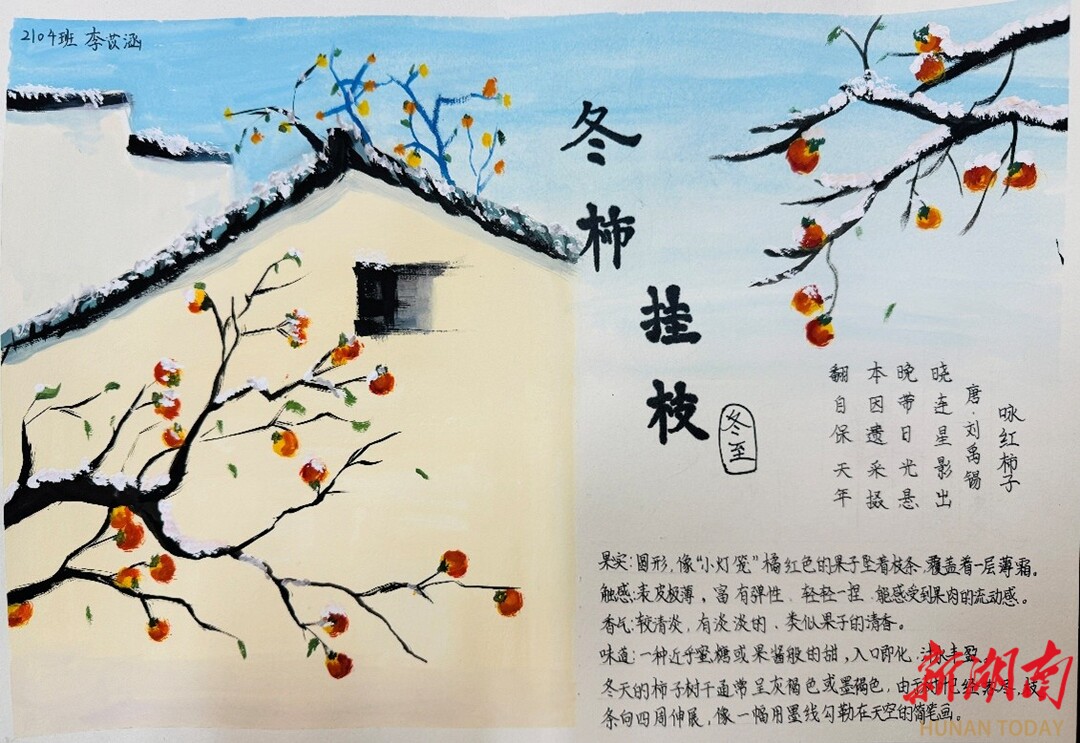 2104班 李苡涵
冬柿挂枝
冬至
咏红柿子
唐·刘禹锡
晓连星影出
晚带日光悬
本因遗采掇
翻自保天年
果实:圆形,像“小灯笼”橘红色的果子坠着枝条,覆盖着一层薄霜。
触感:表皮极薄,富有弹性、轻轻一捏、能感受到果肉的流动感。
香气:较清淡,有淡淡的、类似果子的清香。
味道:一种近乎蜜糖或果酱般的甜,入口即化,汁水丰盈。
冬天的柿子树干通常呈灰褐色或墨褐色,由于叶已经落尽,枝
条向四周伸展,像一幅用墨线勾勒在天空的简笔画。
新湖南
HUNAN TODAY